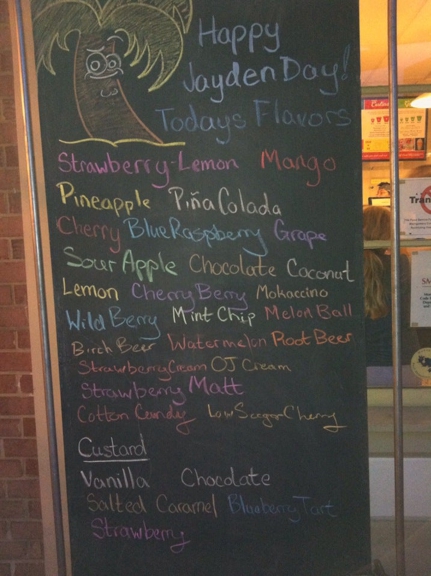 Happy
Jayden Day!
Todays Flavors
Strawberry-Lemon Mango
Pineapple Piña Colada
Cherry Blue Raspberry Grape
Sour Apple Chocolate Coconut
Lemon Cherry Berry Mokaccino
Wild Berry Mint Chip Melon Ball
Birch Beer Watermelon Root Beer
Strawberry Cream OJ Cream
Strawberry Matt
Cotton Candy Low Sugar Cherry
Custard
Vanilla Chocolate
Salted Caramel Blueberry Tart
Strawberry